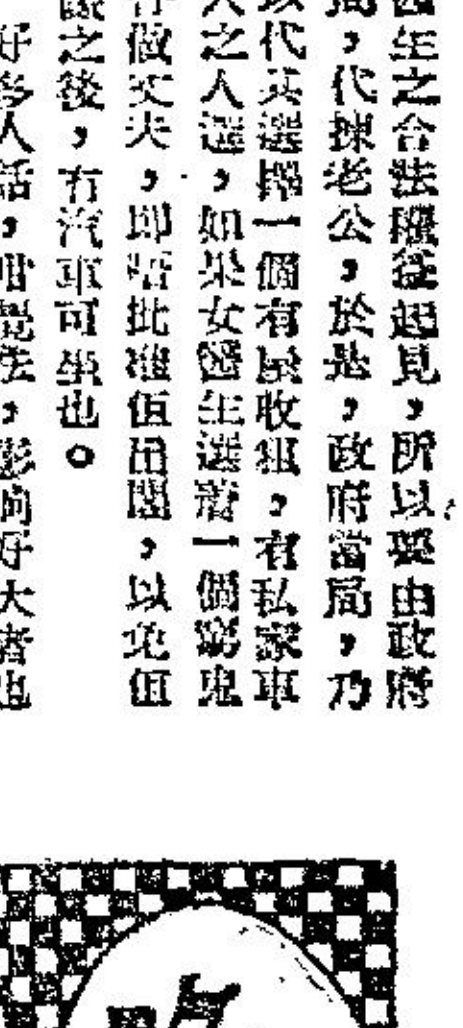 生之合法權益起見，所以要由政府
局，代揀老公，於是，政府當局，乃
以代其選擇一個有屋收租，有私家車
之人選，如果女醫生選着一個窮鬼
做丈夫，即唔批准佢出閣，以免佢
之後，有汽車可坐也。
好多人話，咁攪法，影响好大者也